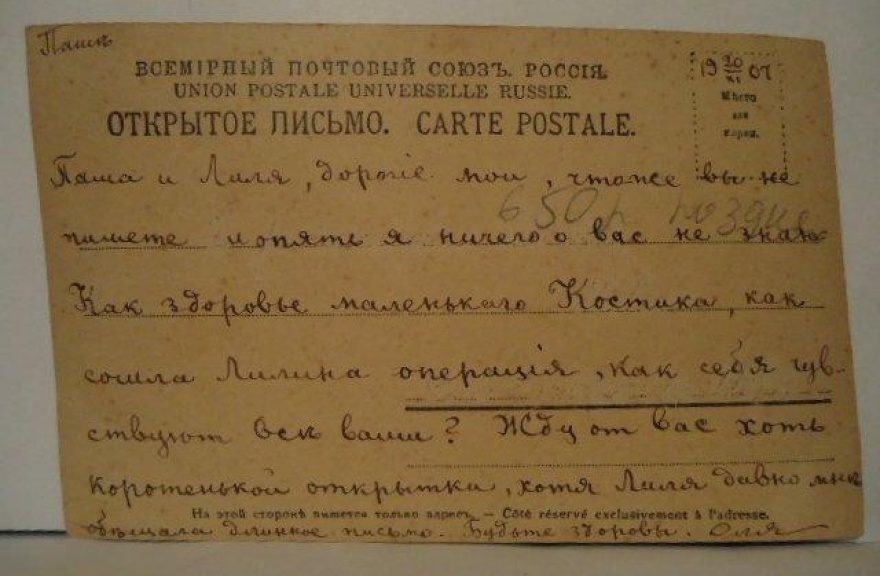 Пашѣ
ВСЕМІРНЫЙ ПОЧТОВЫЙ СОЮЗЪ. РОССІЯ.
UNION POSTALE UNIVERSELLE RUSSIE.
ОТКРЫТОЕ ПИСЬМО. CARTE POSTALE.
19 20/XI 07
Мѣсто
для
марки.
Паша и Лиля, дорогіе мои, что же вы не
650 р
пишете и опять я ничего о вас не знаю
Как здоровье маленькаго Костика, как
сошла Лилина операція, как себя чув-
ствуют всѣ ваши? Жду от вас хоть
коротенькой открытки, хотя Лиля давно мнѣ
На этой сторонѣ пишется только адресъ. — Côté réservé exclusivement à l'adresse.
обѣщала длинное письмо. Будьте здоровы. Оля